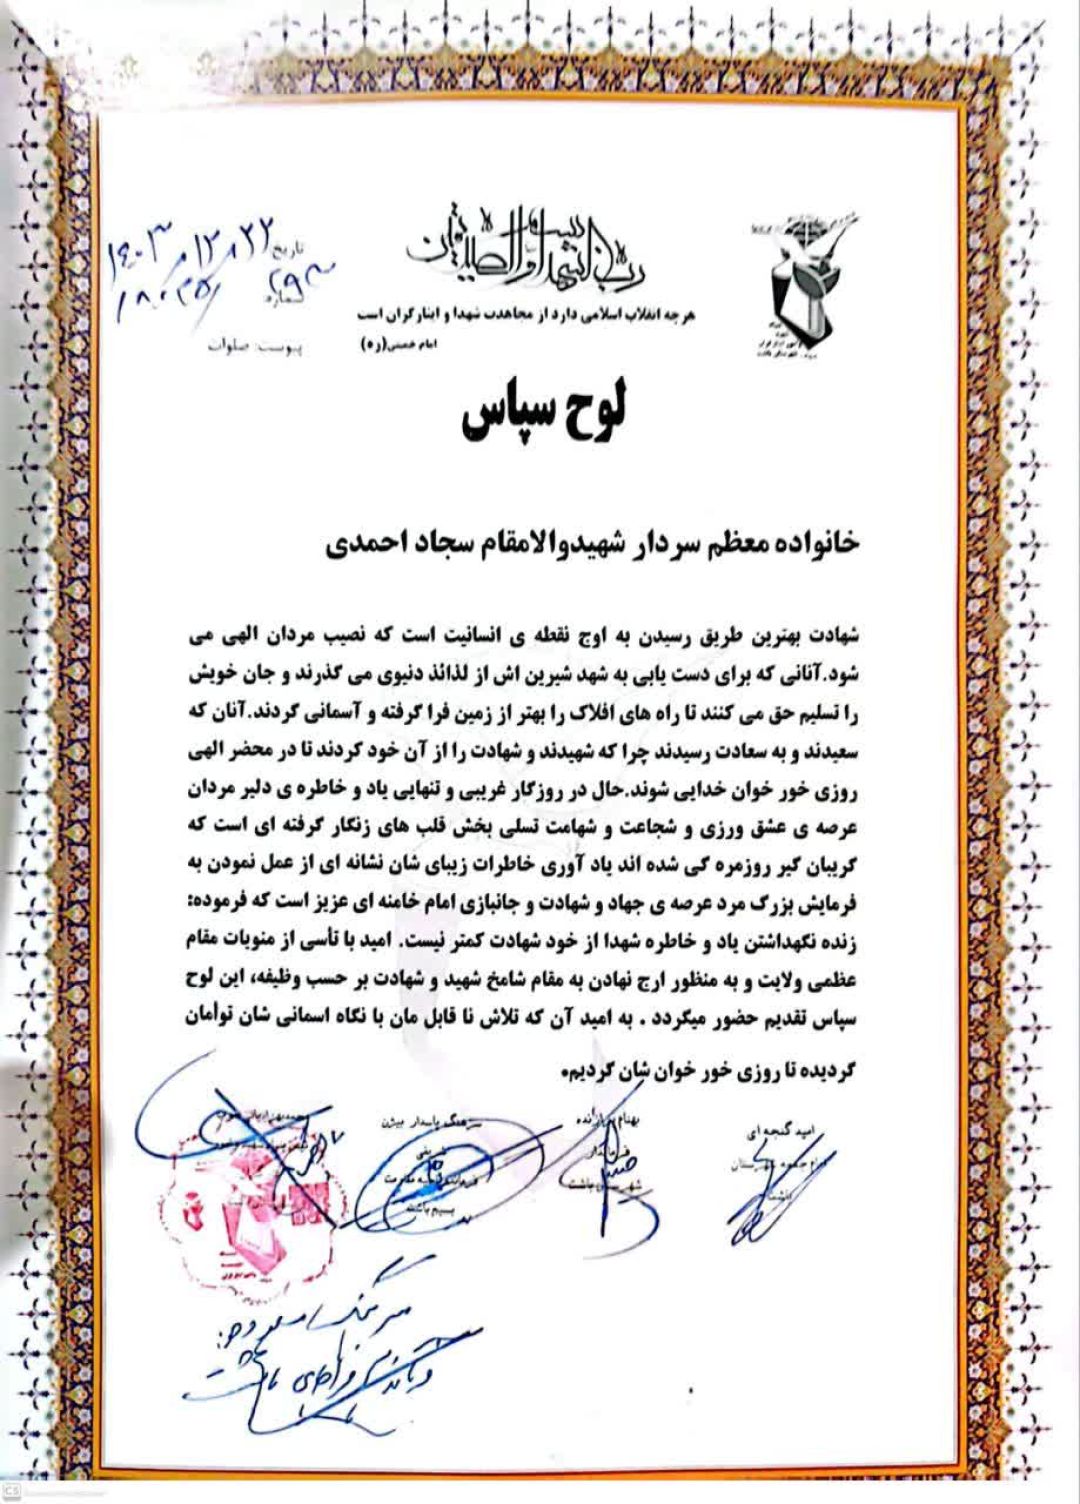 بسم رب الشهدا و الصدیقین
هرچه انقلاب اسلامی دارد از مجاهدت شهدا و ایثارگران است
امام خمینی(ره)
تاریخ ۱۴۰۳/۱۲/۲۲
شماره
پیوست: صلوات
لوح سپاس
خانواده معظم سردار شهیدوالامقام سجاد احمدی
شهادت بهترین طریق رسیدن به اوج نقطه ی انسانیت است که نصیب مردان الهی می
شود.آنانی که برای دست یابی به شهد شیرین اش از لذائذ دنیوی می گذرند و جان خویش
را تسلیم حق می کنند تا راه های افلاک را بهتر از زمین فرا گرفته و آسمانی گردند.آنان که
سعیدند و به سعادت رسیدند چرا که شهیدند و شهادت را از آن خود کردند تا در محضر الهی
روزی خور خوان خدایی شوند.حال در روزگار غریبی و تنهایی یاد و خاطره ی دلیر مردان
عرصه ی عشق ورزی و شجاعت و شهامت تسلی بخش قلب های زنگار گرفته ای است که
گریبان گیر روزمره گی شده اند یاد آوری خاطرات زیبای شان نشانه ای از عمل نمودن به
فرمایش بزرگ مرد عرصه ی جهاد و شهادت و جانبازی امام خامنه ای عزیز است که فرموده:
زنده نگهداشتن یاد و خاطره شهدا از خود شهادت کمتر نیست. امید با تأسی از منویات مقام
عظمی ولایت و به منظور ارج نهادن به مقام شامخ شهید و شهادت بر حسب وظیفه، این لوح
سپاس تقدیم حضور میگردد . به امید آن که تلاش نا قابل مان با نگاه اسمانی شان توأمان
گردیده تا روزی خور خوان شان گردیم.
امید گنجه ای
امام جمعه شهرستان
باشت
بهنام
فرماندار
شهرستان باشت
سرهنگ پاسدار بیژن
شریفی
فرمانده ناحیه مقاومت
بسیج باشت
سرهنگ
فرمانده انتظامی باشت